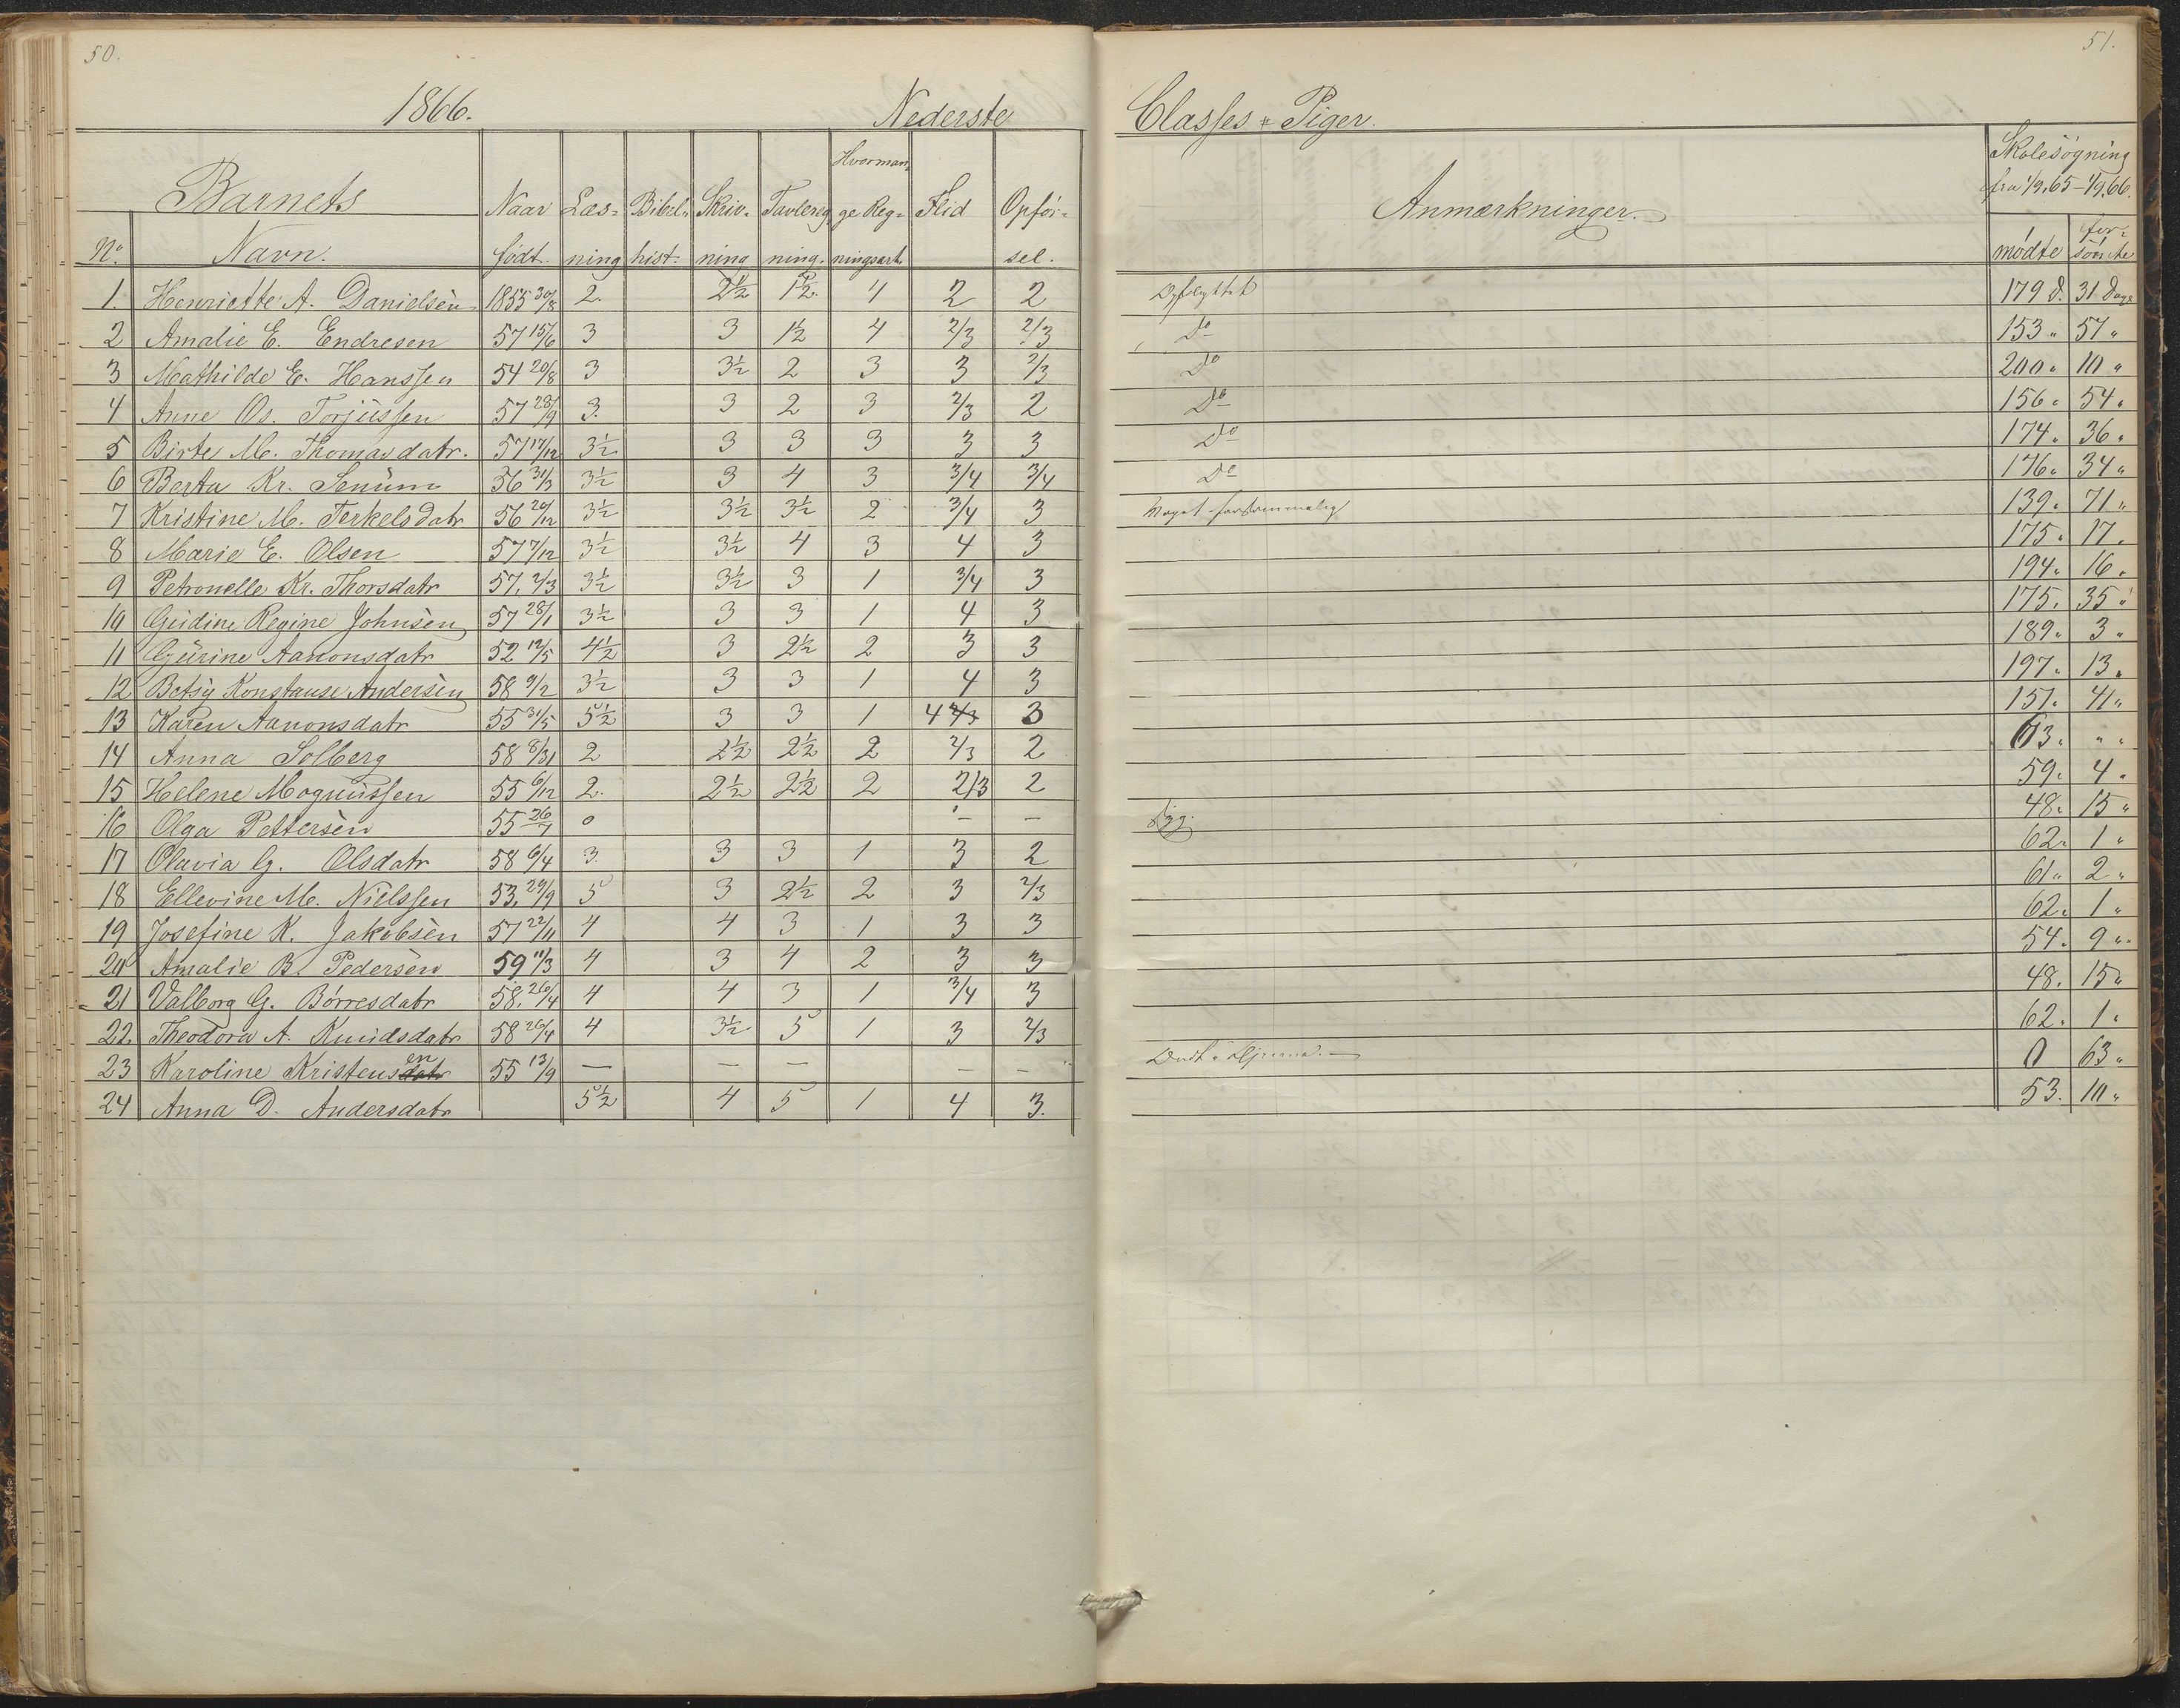 50.
51.
1866.
Nederste
Classes - Piger.
Barnets
Navn.
No.
Naar født.
Læsning
Bibelhist.
Skrivning
Tavleregning.
Hvormange Regningsart.
Flid
Opførsel.
Anmærkninger.
Skolesøgning
fra 1/9.65 - 1/9.66.
mødte
forsømte
1. Henriette A. Danielsen 1855 30/8 2. 2½ 1½ 4 2 2 Opflyttet 179 d. 31 Dage
2 Amalie E. Endresen 57 15/6 3 3 1½ 4 2/3 2/3 Do 153 " 57 "
3 Mathilde E. Hanssen 54 20/8 3 3½ 2 3 3 2/3 Do 200 " 10 "
4 Anne Os. Torjussen 57 28/9 3. 3 2 3 2/3 2 Do 156 " 54 "
5 Birte M. Thomasdatr. 57 17/12 3½ 3 3 3 3 3 Do 174 " 36 "
6 Berta Kr. Senum 56 31/3 3½ 3 4 3 3/4 3/4 Do 176 " 34 "
7 Kristine M. Terkelsdatr 56 20/12 3½ 3½ 3½ 2 3/4 3 Noget 139 " 71 "
8 Marie E. Olsen 57 7/12 3½ 3½ 4 3 4 3 175 " 17 "
9 Petronelle Kr. Thorsdatr 57. 2/3 3½ 3½ 3 1 3/4 3 194 " 16 "
10 Gudine Regine Johnsen 57 28/1 3½ 3 3 1 4 3 175. 35 "
11 Gurine Aanonsdatr 52 12/5 4½ 3 2½ 2 3 3 189 " 3 "
12 Betsy Konstanse Andersen 58 9/2 3½ 3 3 1 4 3 197 " 13 "
13 Karen Aanonsdatr 55 31/5 5½ 3 3 1 4 2/3 3 151. 41 "
14 Anna Solberg 58 8/31 2 2½ 2½ 2 2/3 2 63. " "
15 Helene Magnussen 55 6/12 2. 2½ 2½ 2 2/3 2 59. 4 "
16 Olga Pettersen 55 26/7 0 – – Syg. 48. 15 "
17 Olavia G. Olsdatr 58 6/4 3. 3 3 1 3 2 62. 1 "
18 Ellevine M. Nielssen 53. 29/9 5 3 2½ 2 3 2/3 61 " 2 "
19 Josefine K. Jakobsen 57 22/11 4 4 3 1 3 3 62. 1 "
20 Amalie B. Pedersen 59 11/3 4 3 4 2 3 3 54. 9 "
21 Valborg G. Børresdatr 58. 26/4 4 4 3 1 3/4 3 48. 15 "
22. Theodora A. Knudsdatr 58 26/4 4 3½ 5 1 3 2/3 62. 1 "
23 Karoline Kristensdatr en 55 13/9 – – – – – 0 63 "
24 Anna D. Andersdatr 5½ 4 5 1 4 3. 53. 10 "